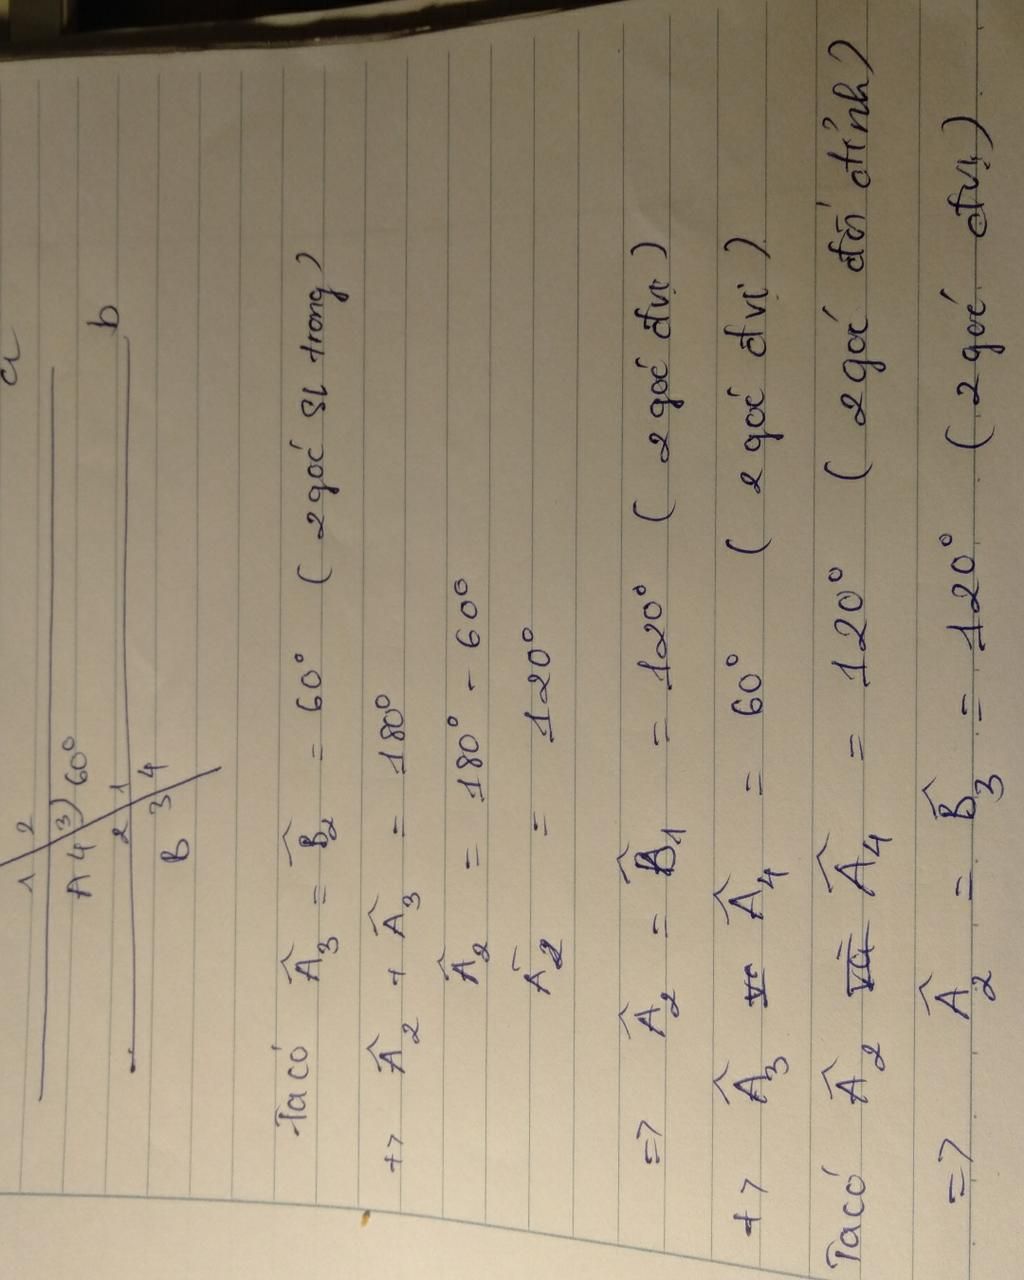 a
1 2
A 4 3) 60°
b
2 1
B 3 4
Ta có Â₃ = B̂₂ = 60° ( 2 góc SL trong )
+> Â₂ + Â₃ = 180°
Â₂ = 180° - 60°
Â₂ = 120°
=> Â₂ = B̂₁ = 120° ( 2 góc đvị )
+> Â₃ Â₄ = 60° ( 2 góc đvị )
Ta có Â₂ Â₄ = 120° ( 2 góc đối đỉnh )
=> Â₂ = B̂₃ = 120° ( 2 góc đvị )